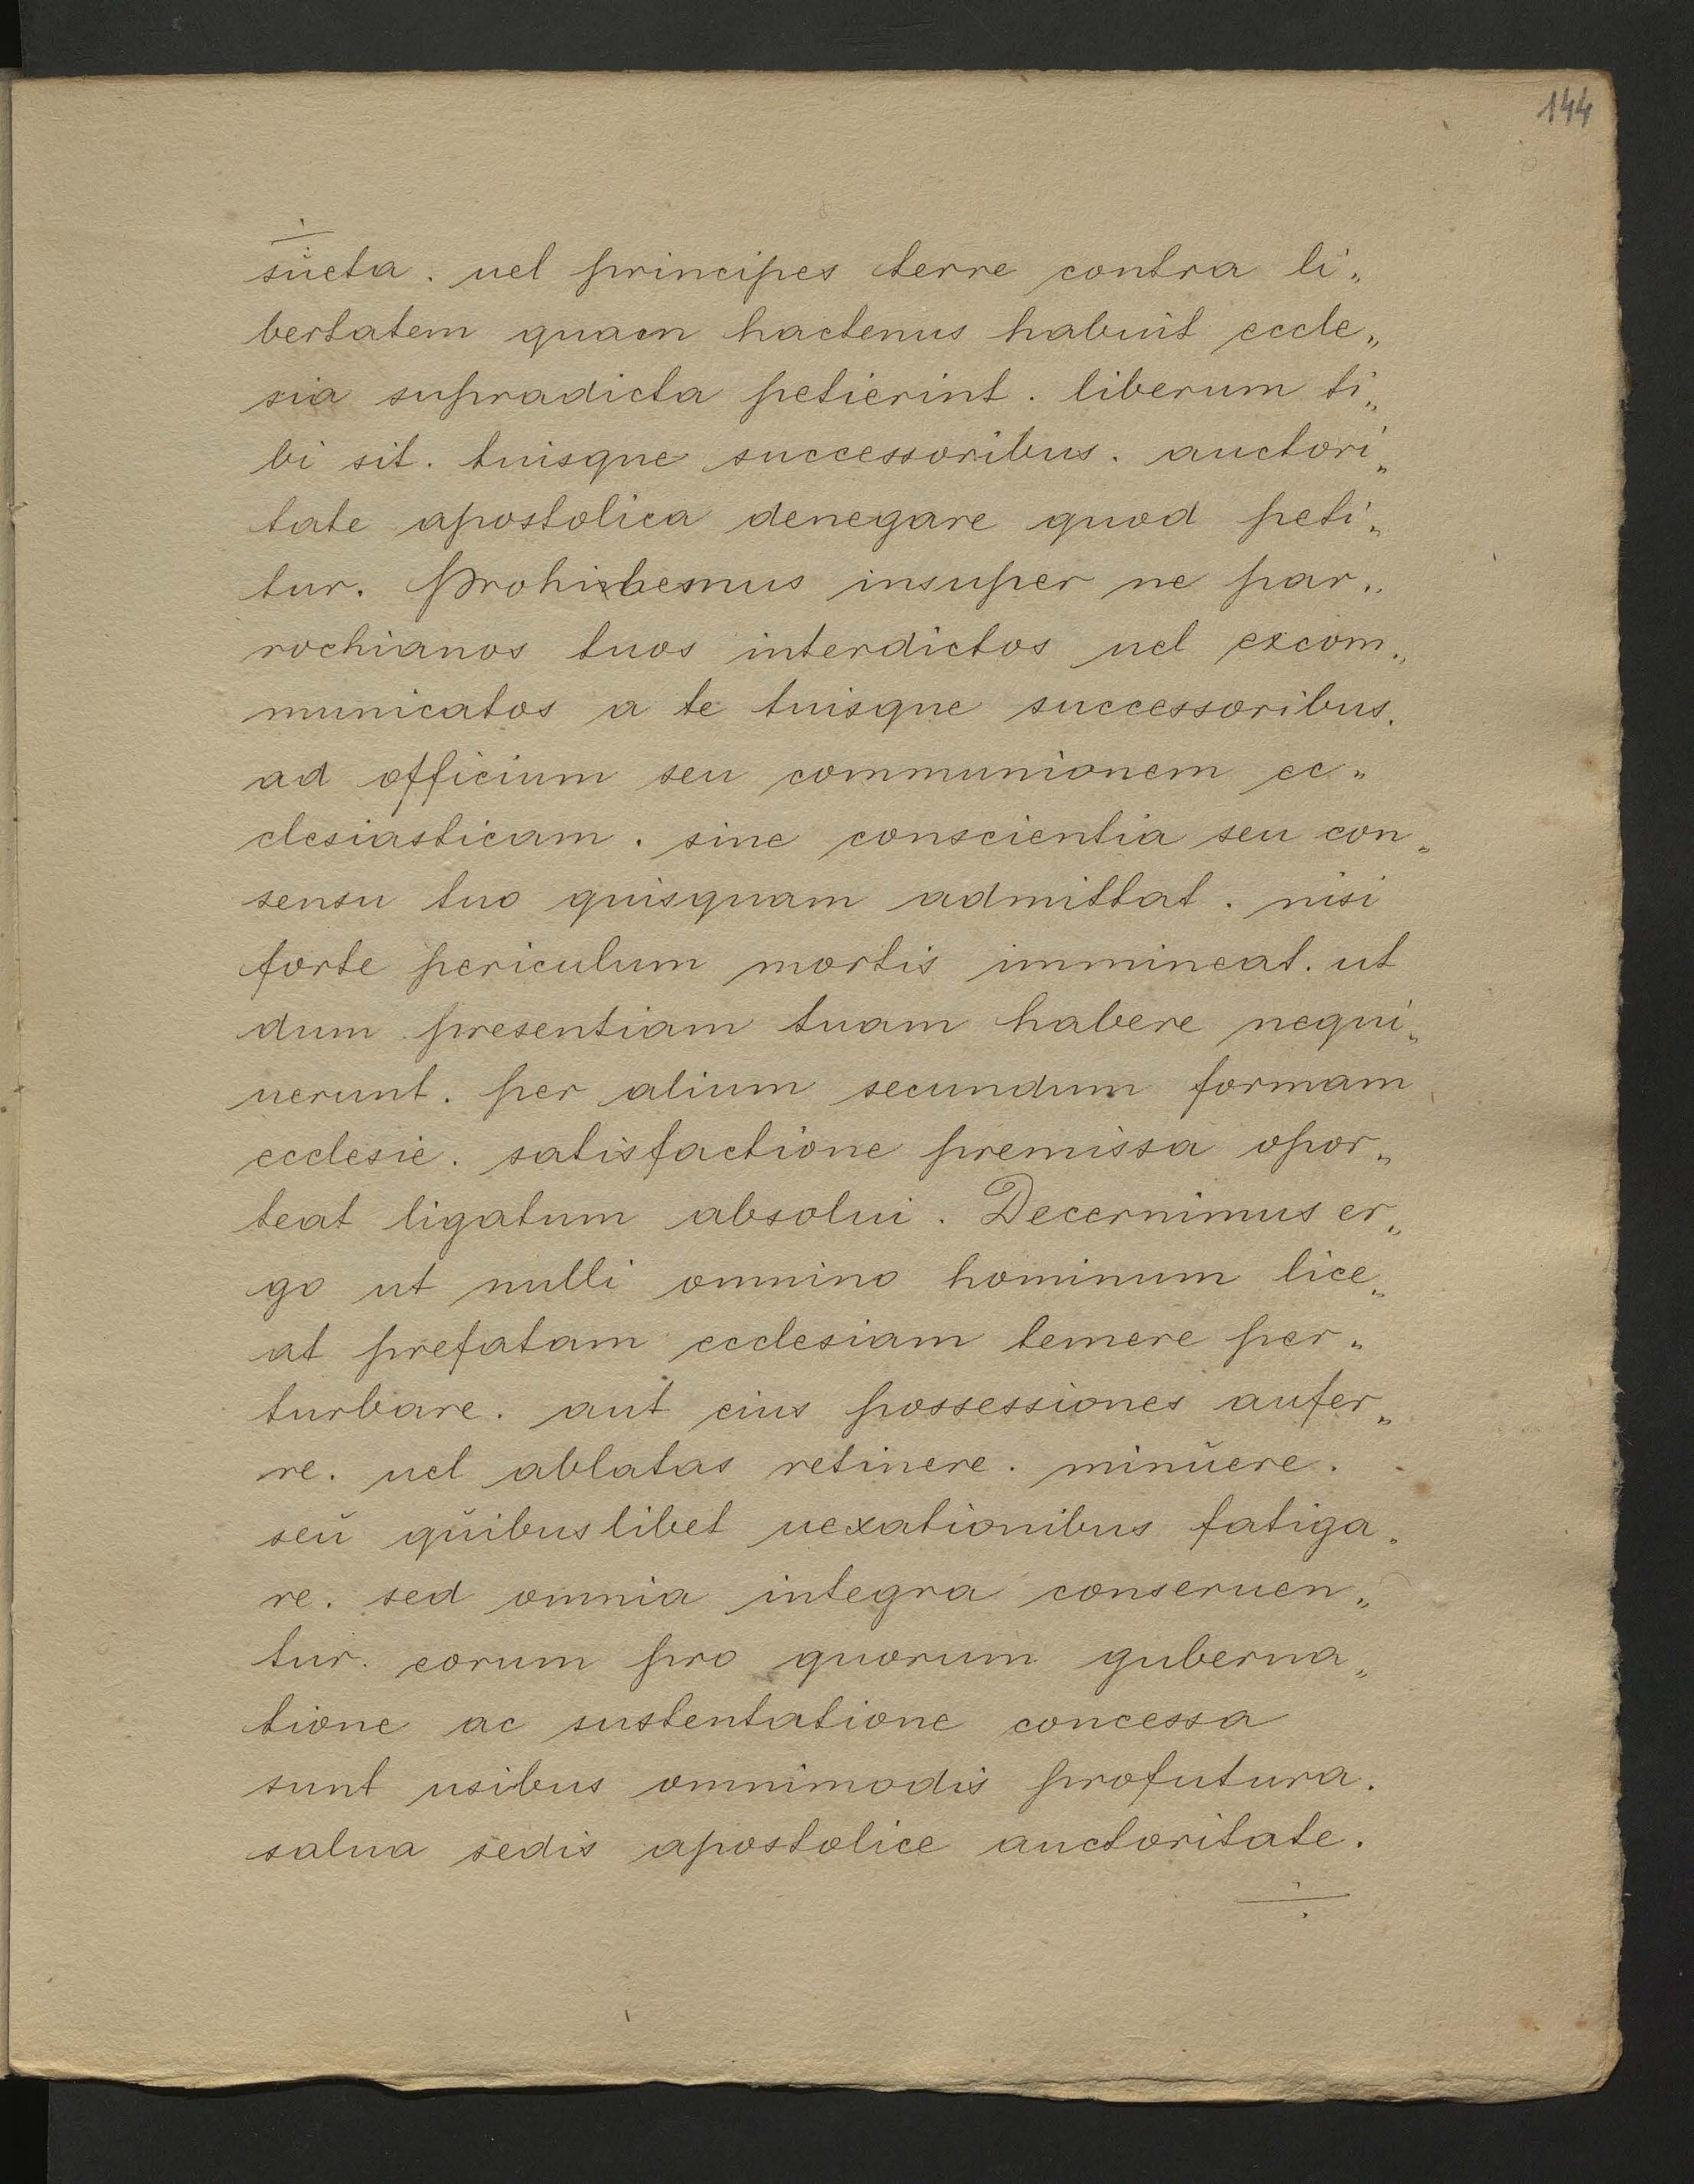 144
sŭeta. uel principes terre contra li„
bertatem quam hactenus habuit eccle„
sia supradicta petierint. liberum ti„
bi sit. tuisque successoribus. auctori„
tate apostolica denegare quod peti„
tur. Prohibemus insuper ne par„
rochianos tuos interdictos uel excom„
municatos a te tuisque successoribus.
ad officium seu communionem ec„
clesiasticam. sine conscientia seu con„
sensu tuo quisquam admittat. nisi
forte periculum mortis immineat. ut
dum presentiam tuam habere nequi„
uerunt. per alium secundum formam
ecclesie. satisfactione premissa opor„
teat ligatum absolui. Decernimus er„
go ut nulli omnino hominum lice„
at prefatam ecclesiam temere per„
turbare. aut eius possessiones aufer„
re. uel ablatas retinere. minŭere.
seŭ qŭibuslibet uexationibus fatiga„
re. sed omnia integra conseruen„
tur. eorum pro quorum guberna„
tione ac sustentatione concessa
sunt usibus omnimodis profutura.
salua sedis apostolice auctoritate.